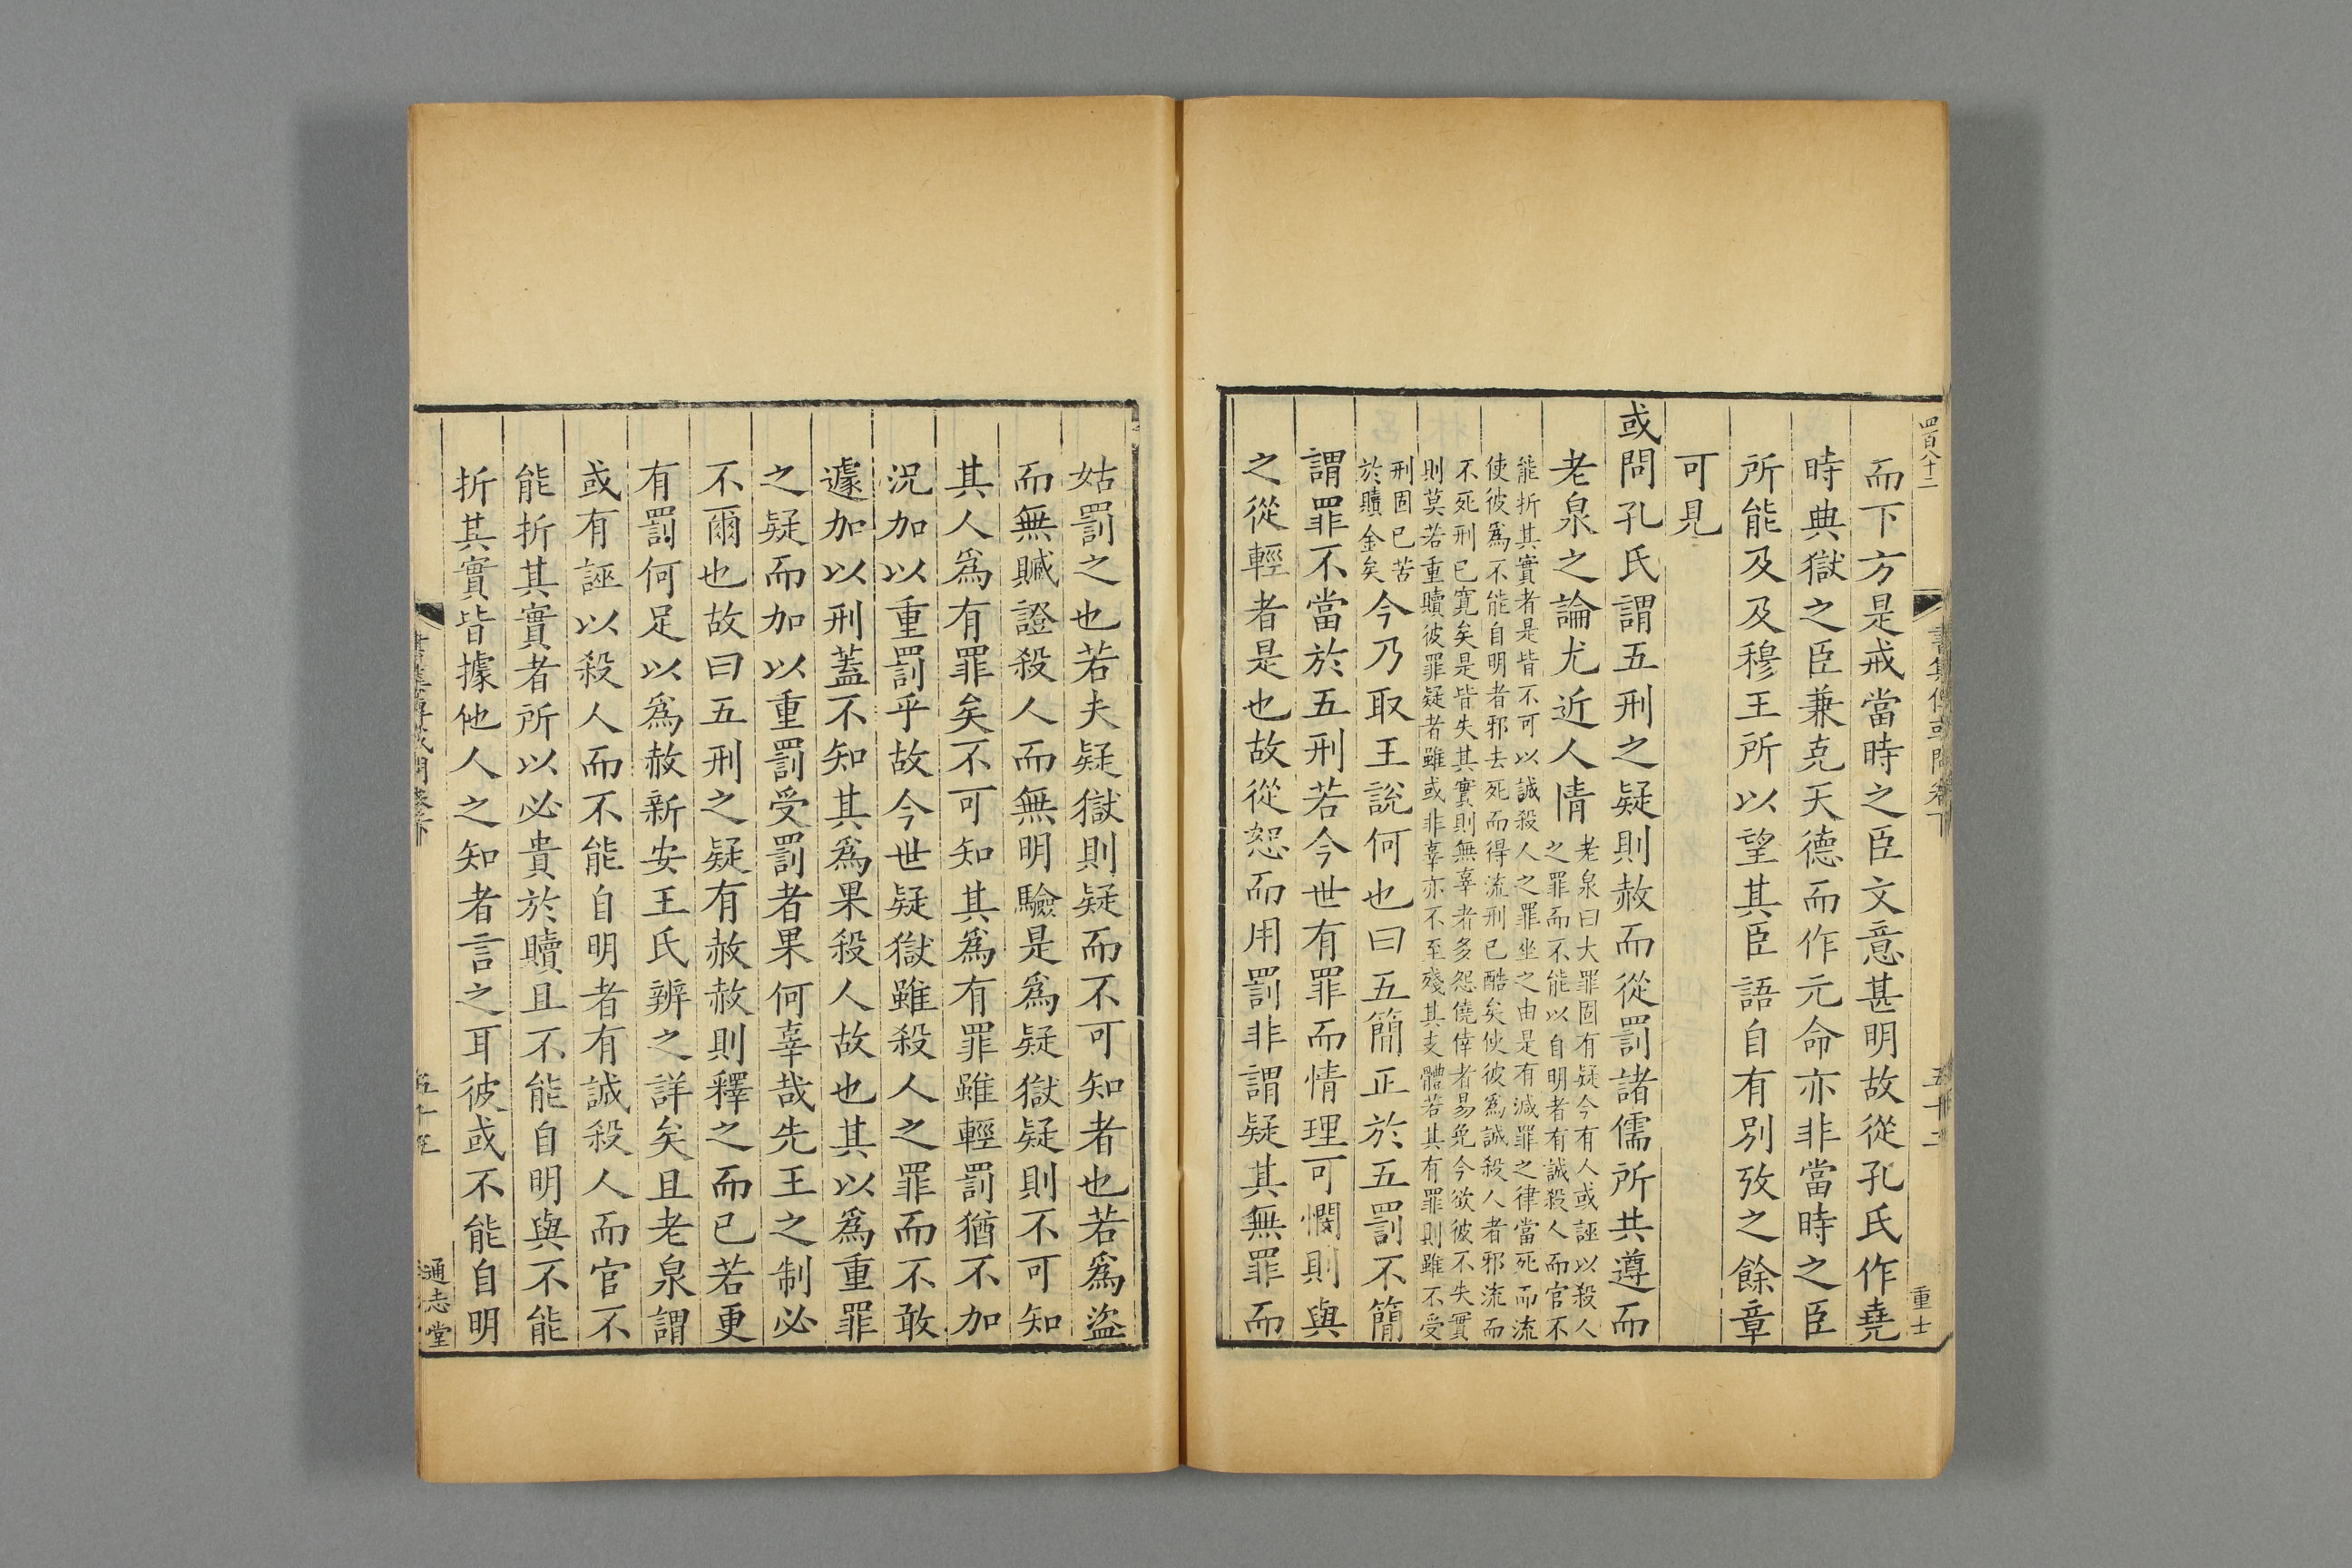 四百八十二
書集傳或問卷下
五十二
重士
而下方是戒當時之臣文意甚明故從孔氏作堯
時典獄之臣兼克天德而作元命亦非當時之臣
所能及及穆王所以望其臣語自有別攷之餘章
可見
或問孔氏謂五刑之疑則赦而從罰諸儒所共遵而
老泉之論尤近人情
老泉曰大罪固有疑今有人或誣以殺人
之罪而不能以自明者有誠殺人而官不
能折其實者是皆不可以誠殺人之罪坐之由是有減罪之律當死而流
使彼爲不能自明者邪去死而得流刑已酷矣使彼爲誠殺人者邪流而
不死刑已寬矣是皆失其實則無辜者多怨僥倖者易免今欲彼不失實
則莫若重贖彼罪疑者雖或非辜亦不至殘其支體若其有罪則雖不受
刑固已苦
於贖金矣
今乃取王說何也曰五簡正於五罰不簡
謂罪不當於五刑若今世有罪而情理可憫則與
之從輕者是也故從恕而用罰非謂疑其無罪而
姑罰之也若夫疑獄則疑而不可知者也若爲盜
而無贓證殺人而無明驗是爲疑獄疑則不可知
其人爲有罪矣不可知其爲有罪雖輕罰猶不加
況加以重罰乎故今世疑獄雖殺人之罪而不敢
遽加以刑蓋不知其爲果殺人故也其以爲重罪
之疑而加以重罰受罰者果何辜哉先王之制必
不爾也故曰五刑之疑有赦赦則釋之而已若更
有罰何足以爲赦新安王氏辨之詳矣且老泉謂
或有誣以殺人而不能自明者有誠殺人而官不
能折其實者所以必貴於贖且不能自明與不能
折其實皆據他人之知者言之耳彼或不能自明
通志堂